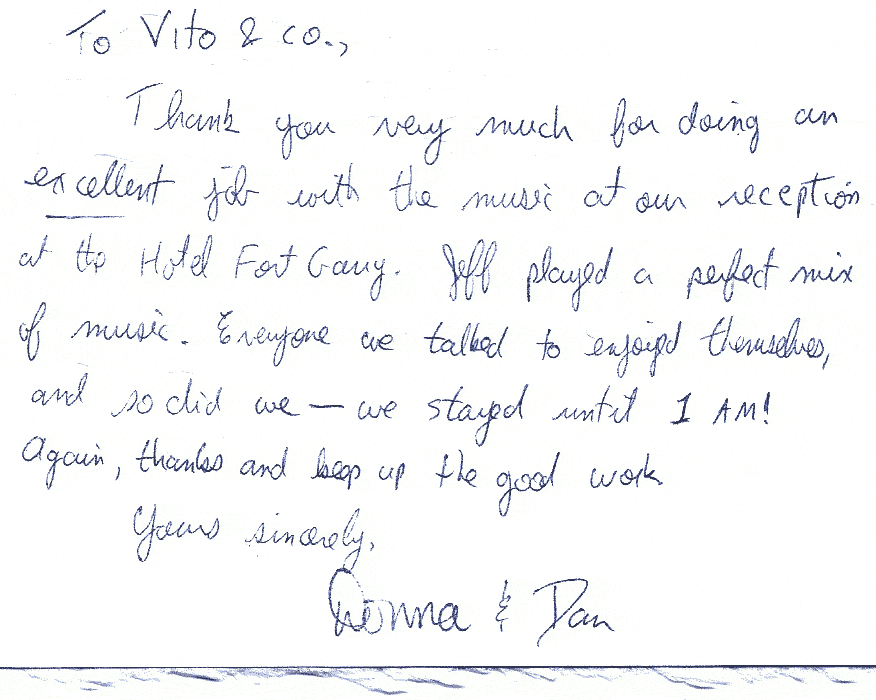 To Vito & co.,
Thank you very much for doing an
excellent job with the music at our reception
at the Hotel Fort Garry. Jeff played a perfect mix
of music. Everyone we talked to enjoyed themselves,
and so did we — we stayed until 1 AM!
Again, thanks and keep up the good work
Yours sincerely,
Donna & Dan